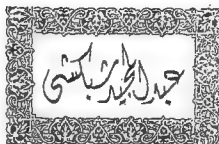 عبد المجيد شبكشي